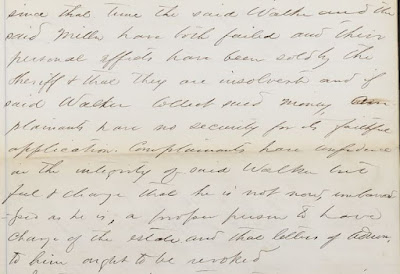 since that time the said Walker and the
said Miller have both failed and their
personal effects have been sold by the
Sheriff & that they are insolvent and if
said Walker collect said money Com
plainants have no security for its faithful
application. Complainants have confidence
in the integrity of said Walker but
feel & charge that he is not now, embarras
-sed as he is, a proper person to have
charge of the estate and that letters of Admn.
to him ought to be revoked